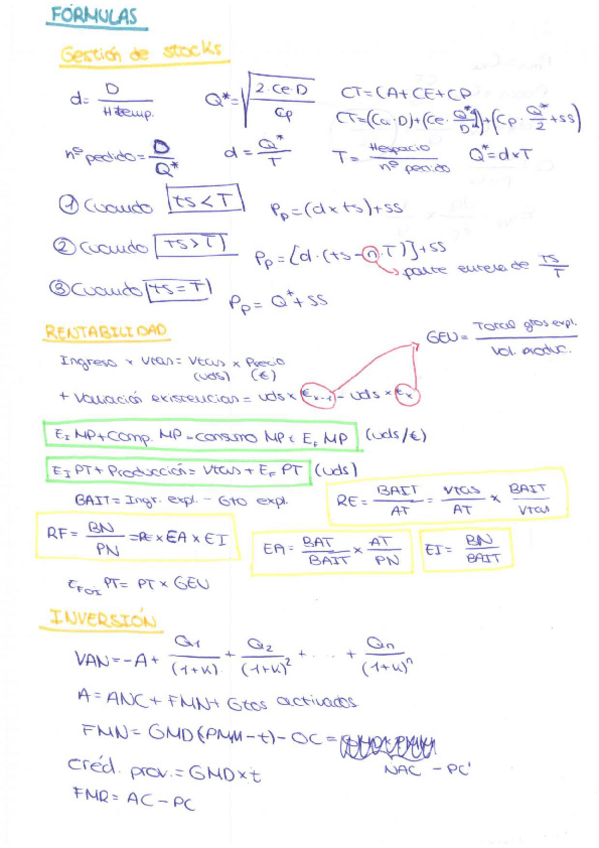 FÓRMULAS
Gestión de stocks
d = D / H temp. Q* = √(2·Ce·D / Cp) CT = CA + CE + CP
CT = (Ca·D) + (Ce· Q* / D) + (Cp· Q* / 2 + SS)
nº pedido = D / Q* d = Q* / T T = Hespacio / nº pedido Q* = d x T
① Cuando ts < T Pp = (d x ts) + SS
② Cuando TS > T Pp = [d · (ts - n · T)] + SS
→ parte entera de TS / T
③ Cuando ts = T Pp = Q* + SS
RENTABILIDAD
GEU = Total gtos expl. / Vol. produc.
Ingreso x vtas = Vtas x Precio
(uds) (€)
+ Variación existencias = uds x €x-1 - uds x €x
EI MP + Comp. MP = consumo MP + EF MP (uds/€)
EI PT + Producción = Vtas + EF PT (uds)
BAIT = Ingr. expl. - Gto expl.
RE = BAIT / AT = Vtas / AT x BAIT / Vtas
RF = BN / PN = RE x EA x EI
EA = BAT / BAIT x AT / PN
EI = BN / BAIT
PT = PT x GEU
INVERSIÓN
VAN = -A + Q1 / (1+K) + Q2 / (1+K)² + ... + Qn / (1+K)ⁿ
A = ANC + FMN + Gtos activados
FMN = GMD (PMM - t) - OC =
NAC - PC'
créd. prov. = GMD x t
FMR = AC - PC